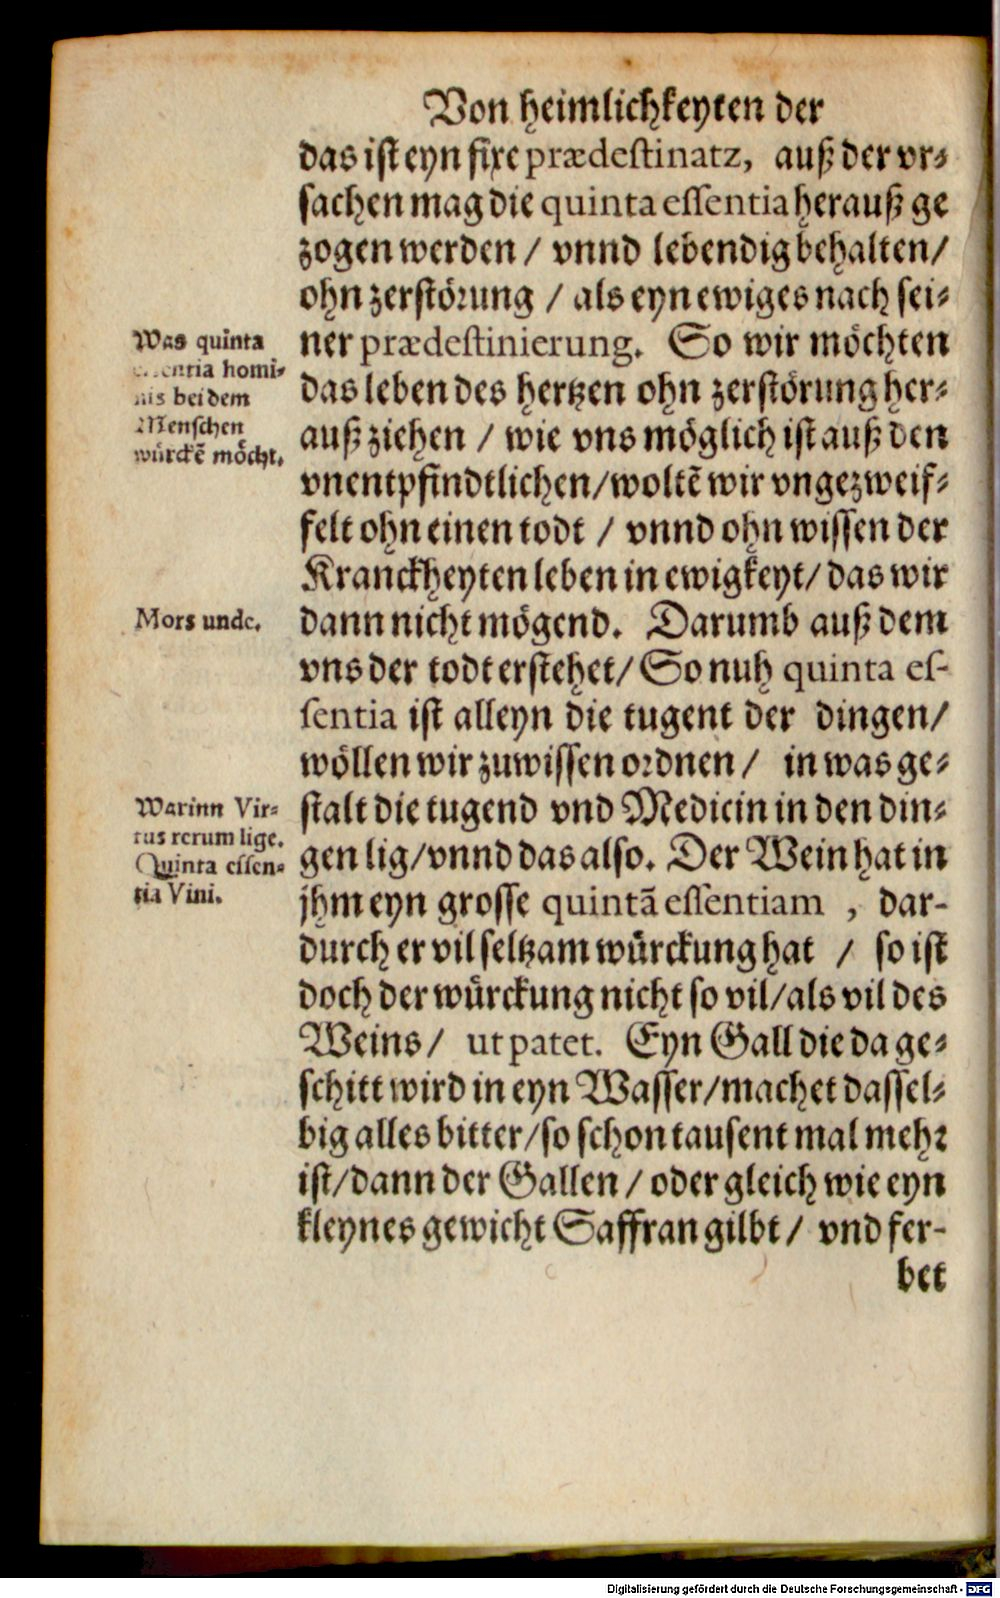 Von heimlichkeyten der
das ist eyn fixe prædestinatz, auß der vr⸗
sachen mag die quinta essentia herauß ge
zogen werden / vnnd lebendig behalten/
ohn zerstörung / als eyn ewiges nach sei⸗
ner prædestinierung. So wir möchten
das leben des hertzen ohn zerstörung her⸗
auß ziehen / wie vns möglich ist auß den
vnentpfindtlichen/woltē wir vngezweif⸗
felt ohn einen todt / vnnd ohn wissen der
Kranckheyten leben in ewigkeyt/ das wir
dann nicht mögend. Darumb auß dem
vns der todt erstehet/ So nuh quinta es-
sentia ist alleyn die tugent der dingen/
wöllen wir zuwissen ordnen / in was ge⸗
stalt die tugend vnd Medicin in den din⸗
gen lig/vnnd das also. Der Wein hat in
jhm eyn grosse quintā essentiam , dar-
durch er vil seltzam würckung hat / so ist
doch der würckung nicht so vil/als vil des
Weins/ ut patet. Eyn Gall die da ge⸗
schitt wird in eyn Wasser/machet dassel⸗
big alles bitter/so schon tausent mal mehr
ist/dann der Gallen / oder gleich wie eyn
kleynes gewicht Saffran gilbt/ vnd fer-
bet
Was quinta
homi⸗
nis bei dem
Menschen
würckē möcht.
Mors unde.
Warinn Vir⸗
tus rerum lige.
Quinta essen⸗
tia Vini.
Digitalisierung gefördert durch die Deutsche Forschungsgemeinschaft - DFG